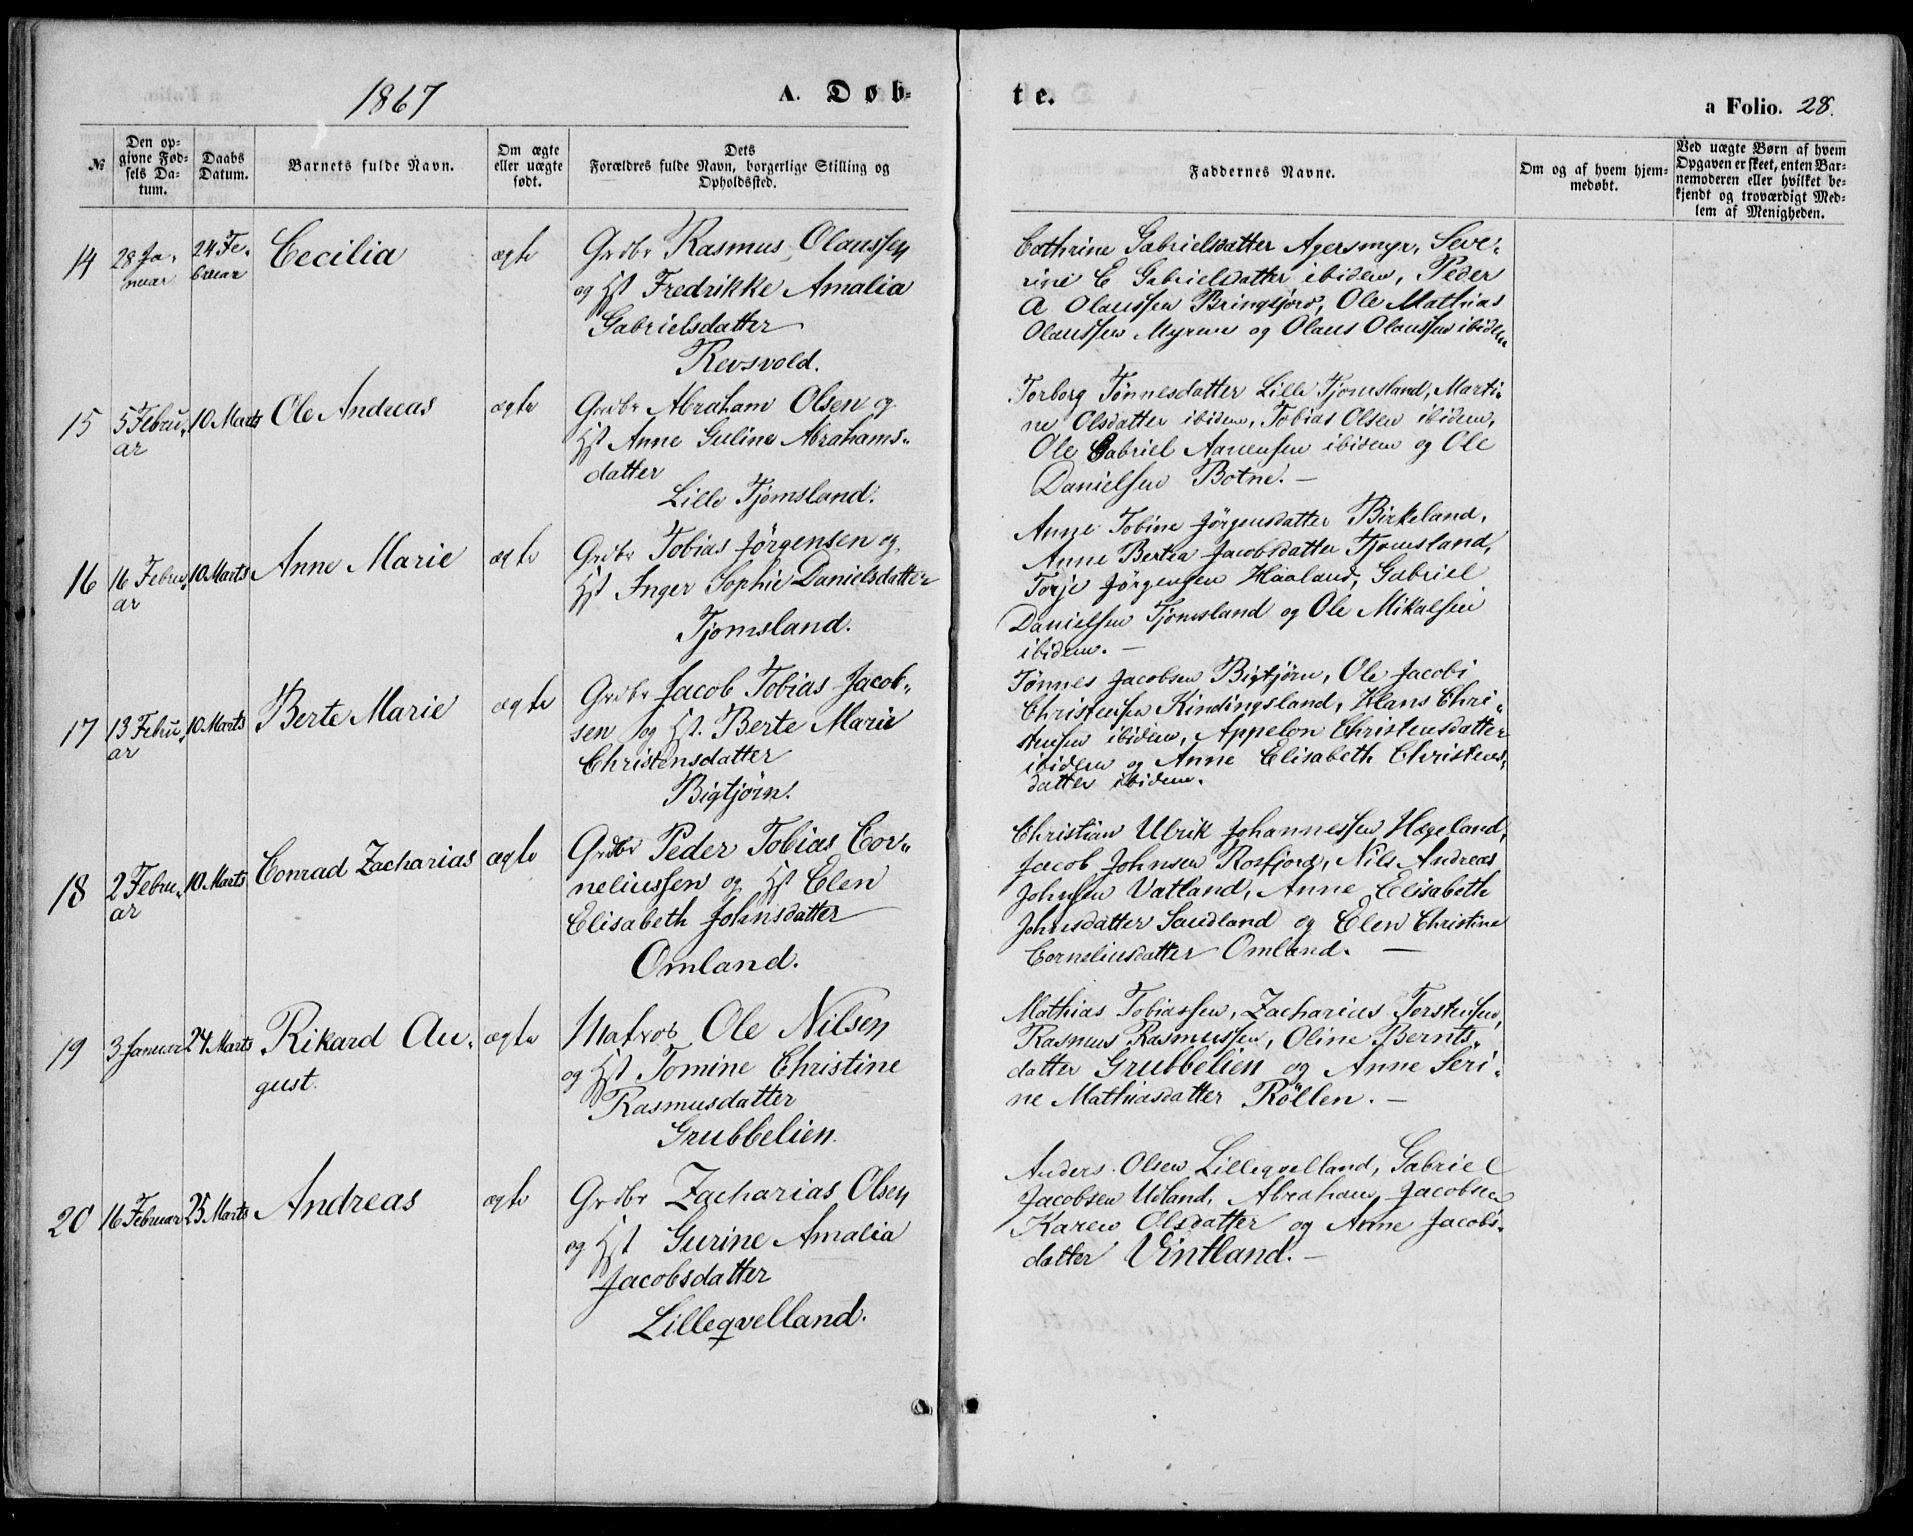 1867
A. Døb-
te.
a Folio. 28.
№
Den op-
givne Fød-
sels Da-
tum.
Daabs
Datum.
Barnets fulde Navn.
Om ægte
eller uægte
født.
Dets
Forældres fulde Navn, borgerlige Stilling og
Opholdssted.
Faddernes Navne.
Om og af hvem hjem-
medøbt.
Ved uægte Børn af hvem
Opgaven er skeet, enten Bar-
nemoderen eller hvilket be-
kjendt og troværdigt Med-
lem af Menigheden.
14
28 Ja-
nuar
24 Fe-
bruar
Cecilia
ægte
Grdbr Rasmus Olaussen
og Hst Fredrikke Amalia
Gabrielsdatter
Revsvold.
Cathrine Gabrielsdatter Agersmyr, Seve-
rine E Gabrielsdatter ibidem, Peder
A Olaussen Bringsjord, Ole Mathias
Olaussen Myrene og Olaus Olaussen ibidem
15
5 Febru-
ar
10 Marts
Ole Andreas
ægte
Grdbr Abraham Olsen og
Hst Anne Guline Abrahams-
datter
Lille Tjomsland.
Torborg Tønnesdatter Lille Tjomsland, Marti-
ne Olsdatter ibidem, Tobias Olsen ibidem,
Ole Gabriel Aanensen ibidem og Ole
Danielsen Botne. —
16
16 Febru-
ar
10 Marts
Anne Marie
ægte
Grdbr Tobias Jörgensen og
Hst Inger Sophie Danielsdatter
Tjomsland.
Anne Tobine Jörgensdatter Birkeland,
Anne Bertea Jacobsdatter Tjomsland,
Torje Jörgensen Haaland, Gabriel
Danielsen Tjomsland og Ole Mikalsen
ibidem. —
17
13 Febru-
ar
10 Marts
Berte Marie
ægte
Grdbr Jacob Tobias Jacob-
sen og Hst. Berte Marie
Christensdatter
Bigtjörn.
Tönnes Jacobsen Bigtjörn, Ole Jacobi
Christensen Kindingsland, Hans Chri-
stensen ibidem, Appelon Christensdatter
ibidem og Anne Elisabeth Christens-
datter ibidem.
18
2 Febru-
ar
10 Marts
Conrad Zacharias
ægte
Grdbr Peder Tobias Cor-
neliussen og Hst Elen
Elisabeth Johnsdatter
Omland.
Christian Ulrik Johannessen Hægeland,
Jacob Johnsen Rosfjord, Nils Andreas
Johnsen Vatland, Anne Elisabeth
Johnsdatter Saudland og Elen Christine
Corneliusdatter Omland. —
19
3 Januar
24 Marts
Rikard Au-
gust.
ægte
Matros Ole Nilsen
og Hst Tomine Christine
Rasmusdatter
Grubbelien.
Mathias Tobiassen, Zacharias Torstensen,
Rasmus Rasmussen, Oline Bernts-
datter Grubbelien og Anne Seri-
ne Mathiasdatter Röllen. —
20
16 Februar
25 Marts
Andreas
ægte
Grdbr Zacharias Olsen
og Hst Gurine Amalia
Jacobsdatter
Lilleqvelland.
Anders Olsen Lilleqvelland, Gabriel
Jacobsen Udland, Abraham Jacobsen
Karen Olsdatter og Anne Jacobs-
datter Vintland. —